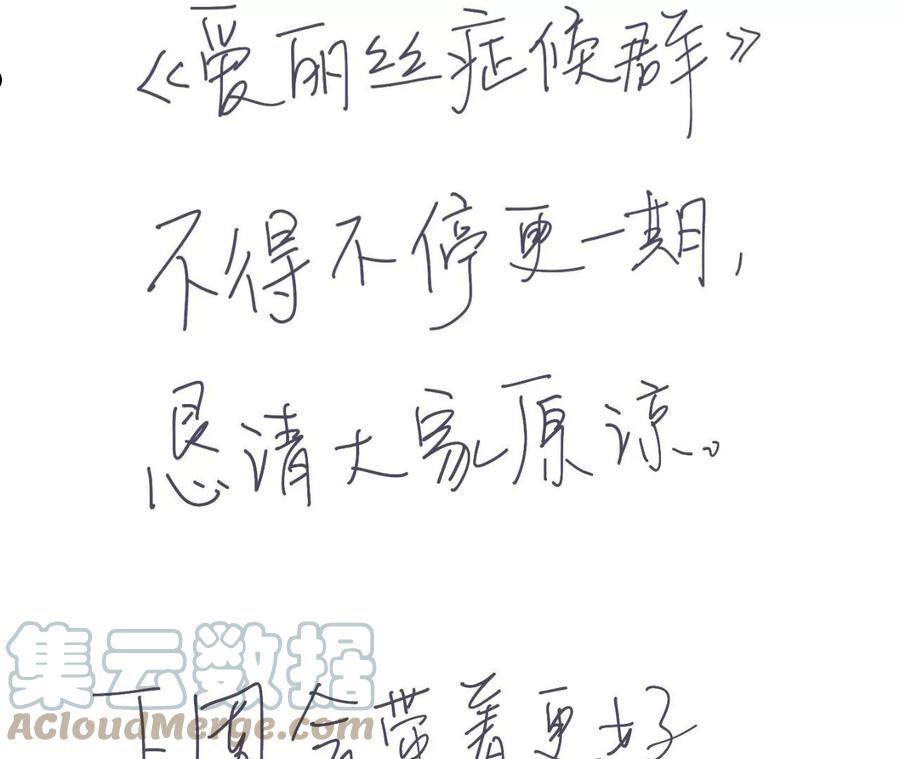 《爱丽丝症候群》
不得不停更一期，
恳请大家原谅。
集云数据
ACloudMerge.com
下周会带着更好